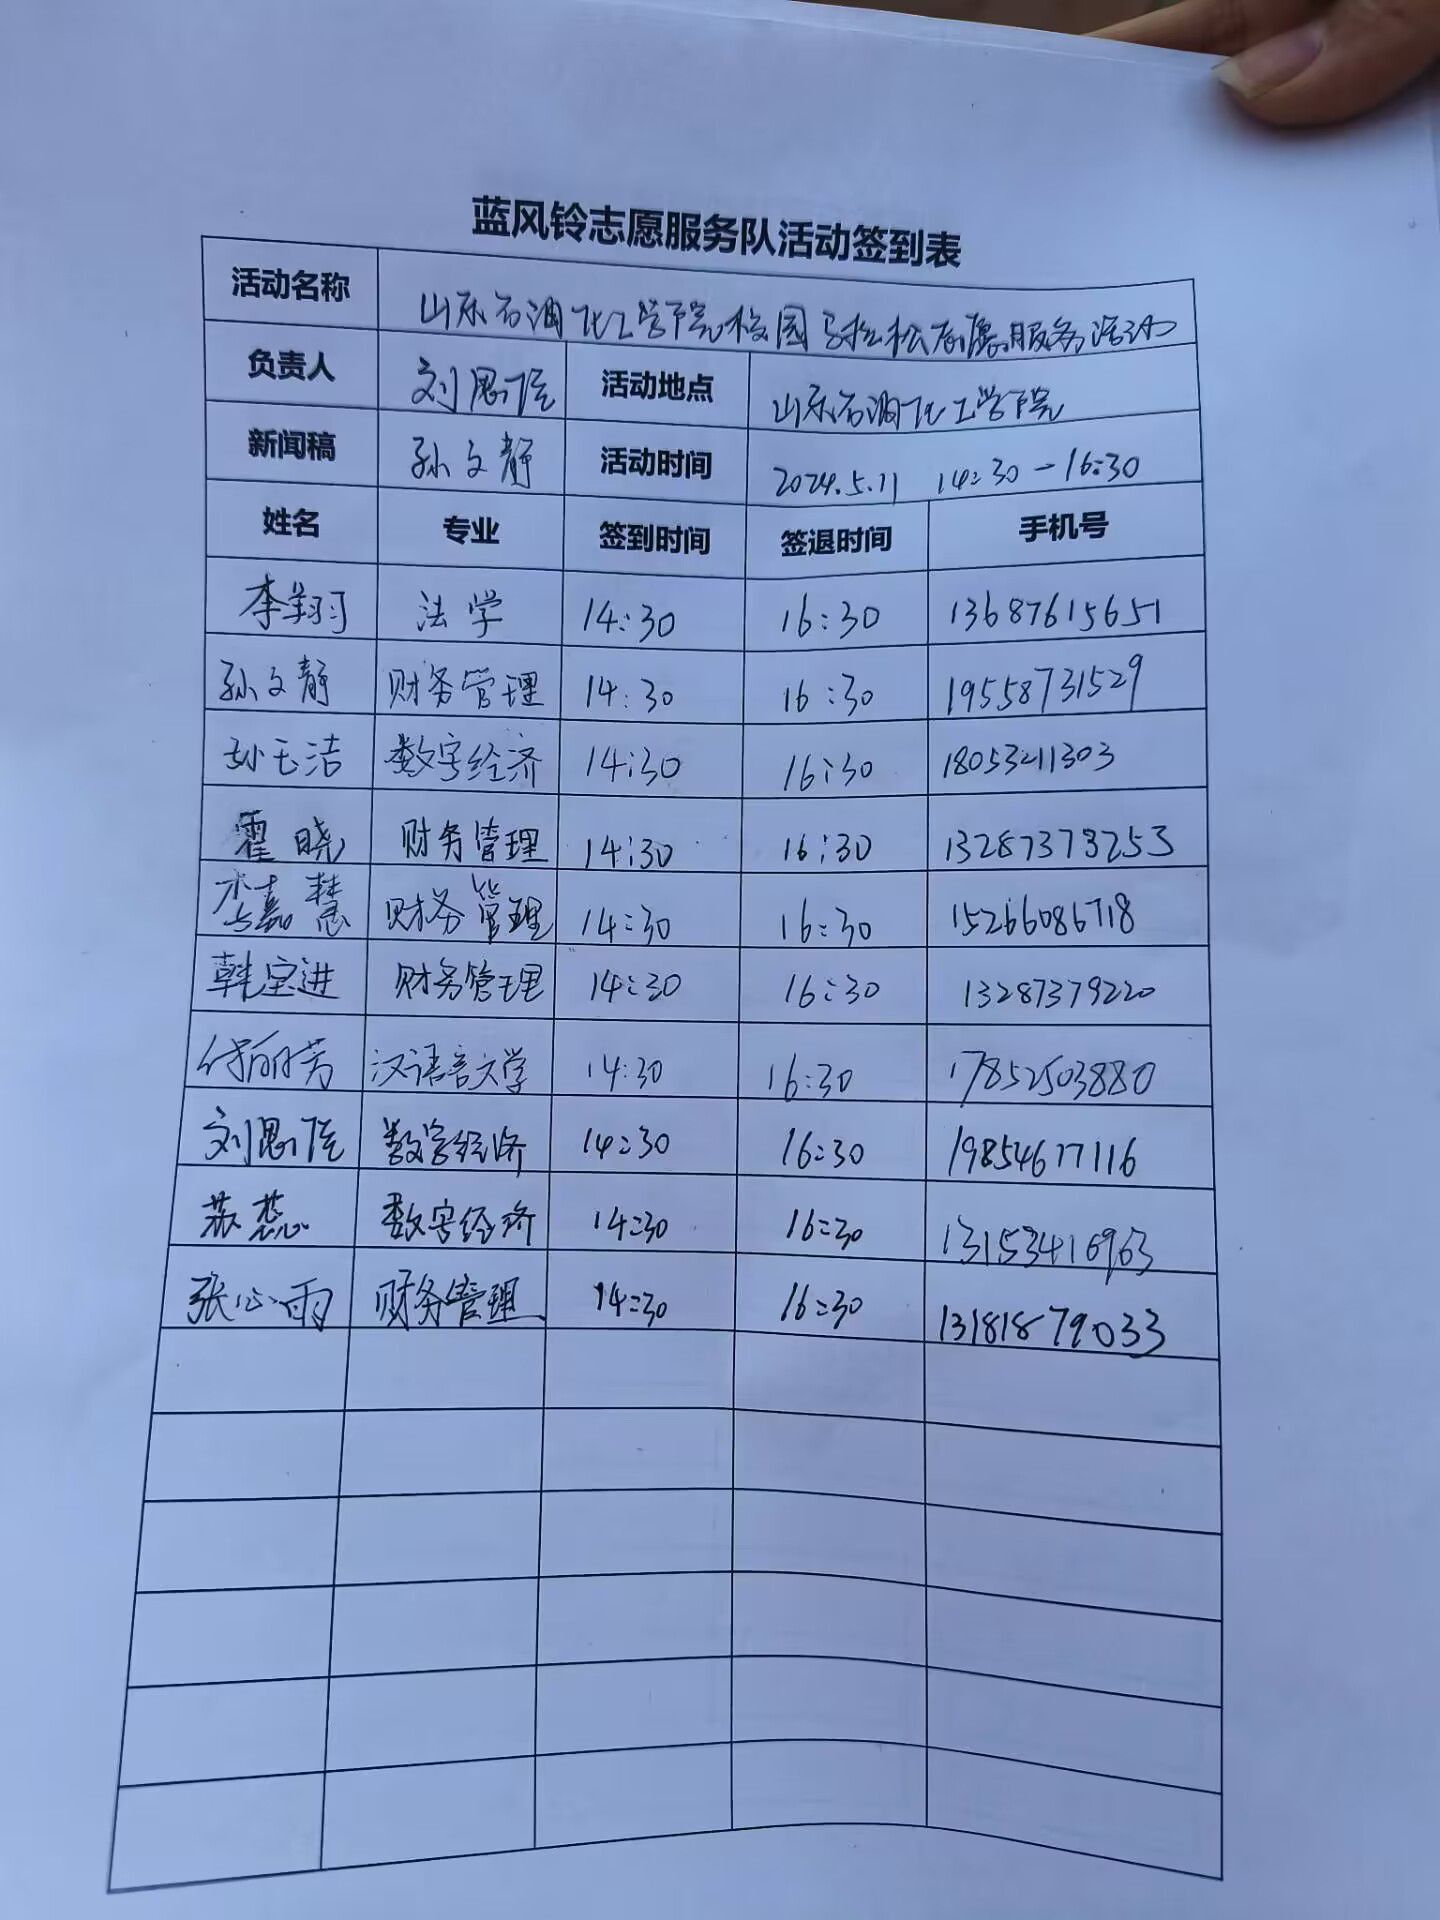 蓝风铃志愿服务队活动签到表
活动名称 山东石油化工学院校园马拉松志愿服务活动
负责人 刘恩佐 活动地点 山东石油化工学院
新闻稿 孙文静 活动时间 2024.5.11 14:30—16:30
姓名 专业 签到时间 签退时间 手机号
李翔 法学 14:30 16:30 13687615651
孙文静 财务管理 14:30 16:30 19558731529
孙玉洁 数字经济 14:30 16:30 18053211303
霍晓 财务管理 14:30 16:30 13287373253
李嘉慧 财务管理 14:30 16:30 15266086718
韩宝进 财务管理 14:30 16:30 13287379220
付丽芳 汉语言文学 14:30 16:30 17852503880
刘恩佐 数字经济 14:30 16:30 19854677116
苏蕊 数字经济 14:30 16:30 13153416963
张心雨 财务管理 14:30 16:30 13181879033